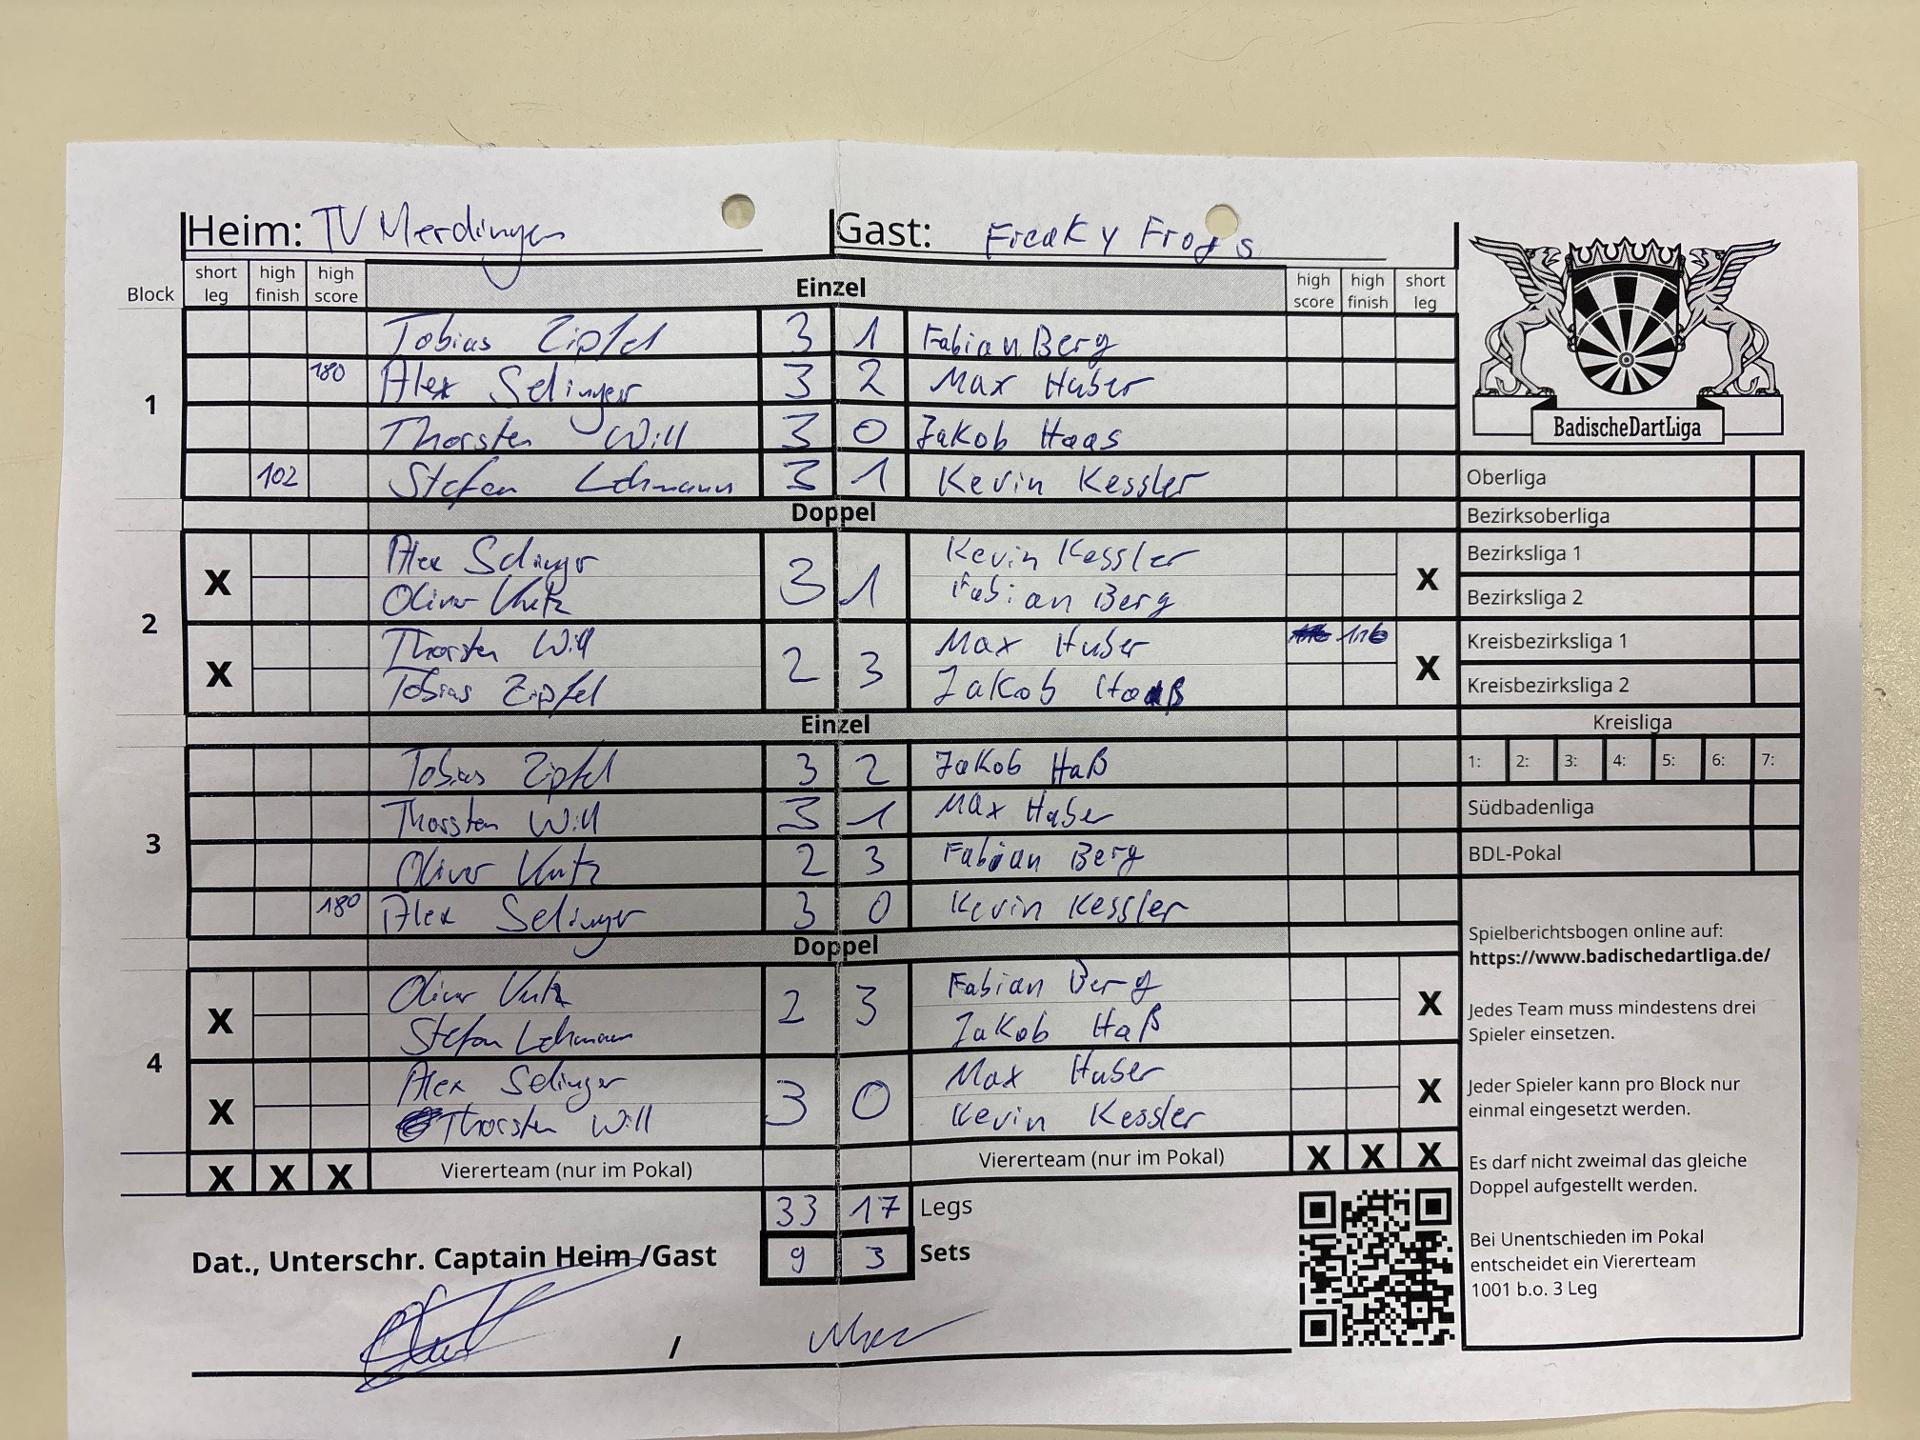 Heim: TV Merdingen Gast: Freaky Frogs
Block short leg high finish high score Einzel high score high finish short leg
Tobias Zipfel 3 1 Fabian Berg
180 Alex Selinger 3 2 Max Huber
1
Thorsten Will 3 0 Jakob Haas
102 Stefan Lehmann 3 1 Kevin Kessler
Doppel
Alex Selinger Kevin Kessler
X 3 1 X
Oliver Fabian Berg
2
Thorsten Will Max Huber 116
X 2 3 X
Tobias Zipfel Jakob Haaß
Einzel
Tobias Zipfel 3 2 Jakob Haß
Thorsten Will 3 1 Max Huber
3
Oliver 2 3 Fabian Berg
180 Alex Selinger 3 0 Kevin Kessler
Doppel
Oliver Fabian Berg
X 2 3 X
Stefan Lehmann Jakob Haß
4
Alex Selinger Max Huber
X 3 0 X
Thorsten Will Kevin Kessler
X X X Viererteam (nur im Pokal) Viererteam (nur im Pokal) X X X
33 17 Legs
9 3 Sets
Dat., Unterschr. Captain Heim /Gast
/
BadischeDartLiga
Oberliga
Bezirksoberliga
Bezirksliga 1
Bezirksliga 2
Kreisbezirksliga 1
Kreisbezirksliga 2
Kreisliga
1: 2: 3: 4: 5: 6: 7:
Südbadenliga
BDL-Pokal
Spielberichtsbogen online auf:
https://www.badischedartliga.de/
Jedes Team muss mindestens drei
Spieler einsetzen.
Jeder Spieler kann pro Block nur
einmal eingesetzt werden.
Es darf nicht zweimal das gleiche
Doppel aufgestellt werden.
Bei Unentschieden im Pokal
entscheidet ein Viererteam
1001 b.o. 3 Leg